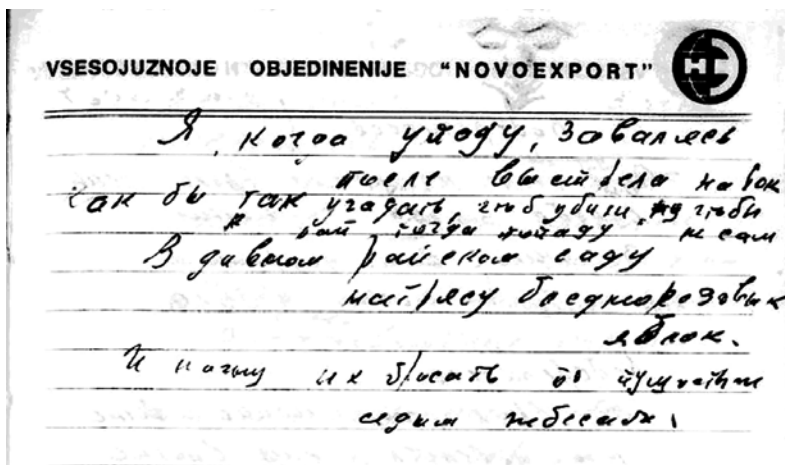 VSESOJUZNOJE OBJEDINENIJE "NOVOEXPORT"
Я, когда упаду, заваляясь
после выстрела на бок
Как бы так угадать, чтоб убили, чтобы не сам
рай тогда попаду
В дивном райском саду
натрясу бледнорозовых
яблок.
И начну их бросать по пушистым
седым небесам.